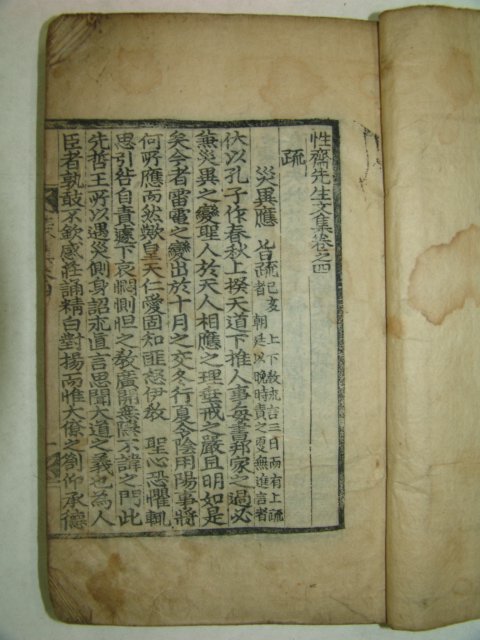 性齋先生文集卷之四
疏
災異應旨疏 己亥 上下敎求言三日而有上疏者 朝廷以晚時責之更無進言者
伏以孔子作春秋上揆天道下推人事每書邦家之過必
兼災異之變聖人於天人相應之理垂戒之嚴且明如是
矣今者雷電之變出於十月之交冬行夏令陰用陽事將
何所應而然歟皇天仁愛固知匪怒伊敎 聖心恐懼輒
思引咎自責遽下哀惻怛之敎廣開無隱不諱之門此
先哲王所以遇災側身詔求直言思聞大道之義也爲人
臣者孰敢不欽感莊誦精白對揚而惟大僚之劄仰承德